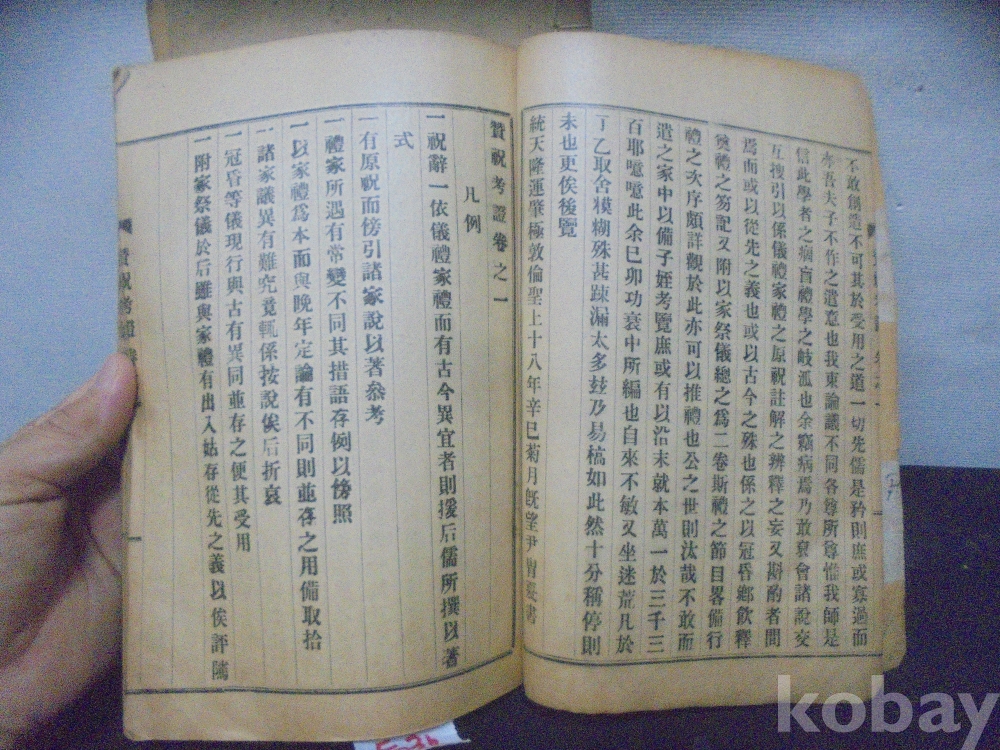 不敢創造不可其於受用之道一切先儒是矜則庶或寡過而
亦吾夫子不作之遺意也我東論議不同各尊所尊惟我師是
信此學者之痼盲禮學之岐派也余竊病焉乃敢裒會諸說交
互搜引以係儀禮家禮之原祝註解之辨釋之妄又斟酌者間
焉而或以從先之義也或以古今之殊也係之以冠昏鄉飮釋
奠禮之笏記又附以家祭儀總之爲二卷斯禮之節目畧備行
禮之次序頗詳觀於此亦可以推禮也公之世則汰哉不敢而
遺之家中以備子姪考覽庶或有以沿末就本萬一於三千三
百耶噫噫此余巳卯功衰中所編也自來不敏又坐迷荒凡於
丁乙取舍糢糊殊甚踈漏太多玆乃易槁如此然十分稱停則
未也更俟後覽
統天隆運肇極敦倫聖上十八年辛巳菊月旣望尹 書
贊祝考證卷之一
凡例
一祝辭一依儀禮家禮而有古今異宜者則援后儒所撰以著
式
一有原祝而傍引諸家說以著參考
一禮家所遇有常變不同其措語存例以傍照
一以家禮爲本面與晩年定論有不同則並存之用備取拾
一諸家議異有難究竟輒係按說俟后折衷
一冠昏等儀現行與古有異同並存之便其受用
一附家祭儀於后雖與家禮有出入姑存從先之義以俟評隲
贊祝考證
kobay